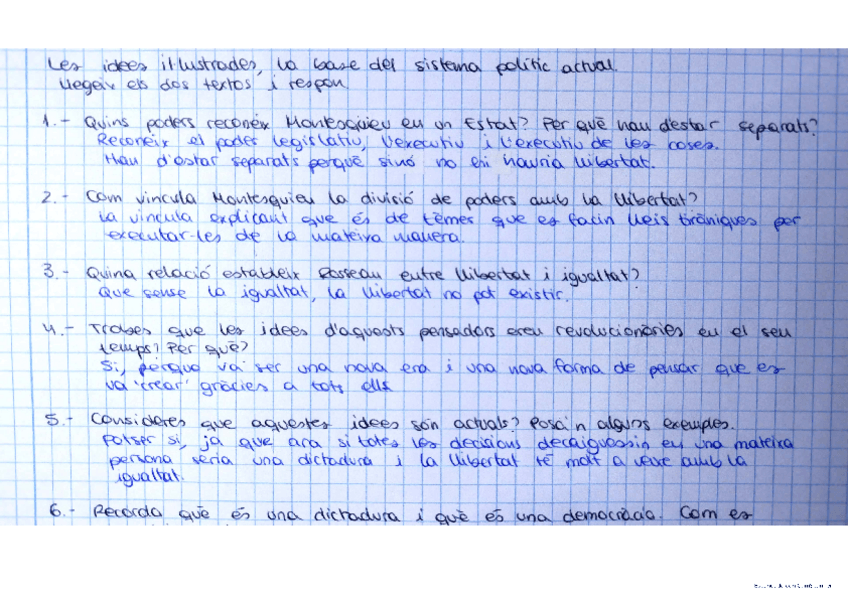 Les idees il·lustrades, la base del sistema polític actual.
Llegeix els dos textos i respon.
1.- Quins poders reconeix Montesquieu en un Estat? Per què han d'estar separats?
Reconeix el poder legislatiu, l'executiu i l'executiu de les coses.
Han d'estar separats perquè sinó no hi hauria llibertat.
2.- Com vincula Montesquieu la divisió de poders amb la llibertat?
La vincula explicant que és de témer que es facin lleis tiràniques per
executar-les de la mateixa manera.
3.- Quina relació estableix Rosseau entre llibertat i igualtat?
Que sense la igualtat, la llibertat no pot existir.
4.- Trobes que les idees d'aquests pensadors eren revolucionàries en el seu
temps? Per què?
Si, perquè va ser una nova era i una nova forma de pensar que es
va 'crear' gràcies a tots ells
5.- Consideres que aquestes idees són actuals? Posa'n alguns exemples.
Potser si, ja que ara si totes les decisions decaiguessin en una mateixa
persona seria una dictadura i la llibertat té molt a veure amb la
igualtat.
6.- Recorda què és una dictadura i què és una democràcia. Com es